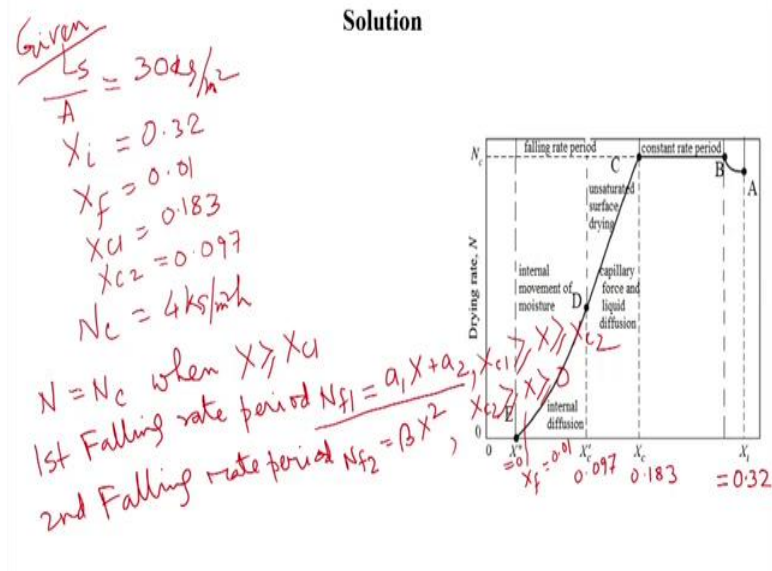 Solution
Given
Ls/A = 30 kg/m2
Xi = 0.32
Xf = 0.01
Xc1 = 0.183
Xc2 = 0.097
Nc = 4 kg/m2h
N = Nc when X ≥ Xc1
1st Falling rate period Nf1 = a1X + a2, Xc1 ≥ X ≥ Xc2
2nd Falling rate period Nf2 = βX2, Xc2 ≥ X ≥ 0
Nc
falling rate period
constant rate period
C
B
A
unsaturated
surface
drying
internal
movement of
moisture
D
capillary
force and
liquid
diffusion
E
internal
diffusion
Drying rate, N
0
0
X*
Xc
Xi
=0
Xf = 0.01
0.097
0.183
=0.32